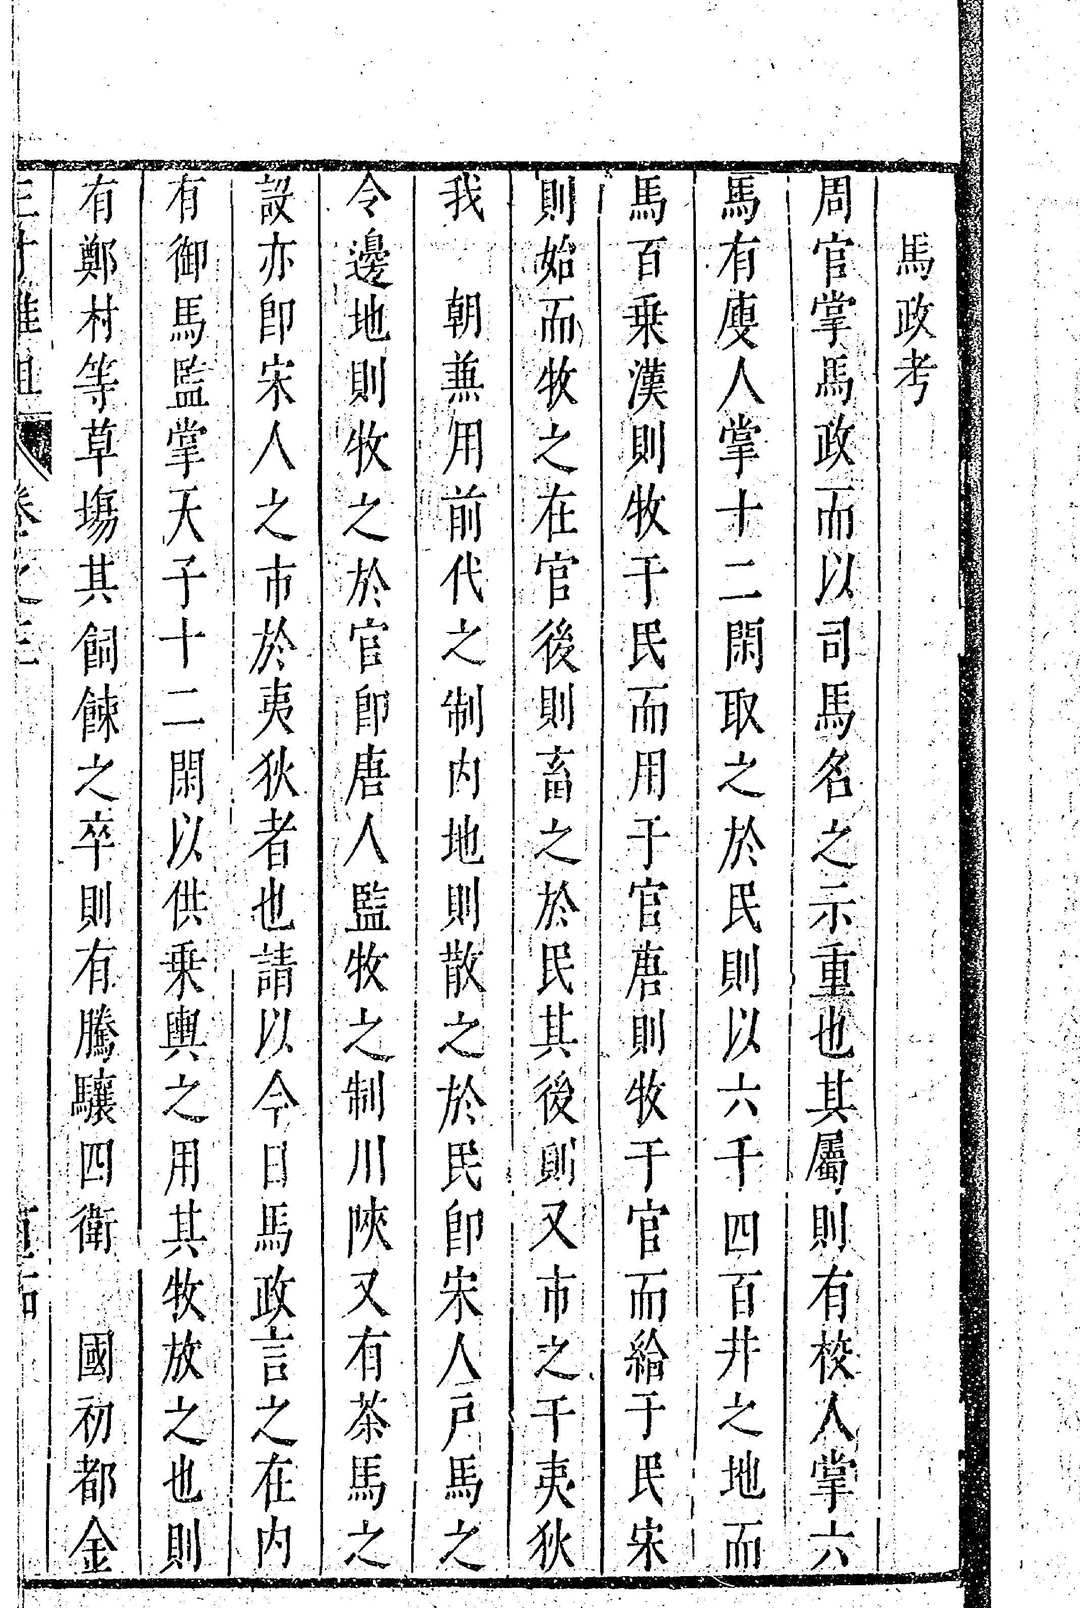 馬政考
周官掌馬政而以司馬名之示重也其屬則有校人掌六
馬有廋人掌十二閑取之於民則以六千四百井之地而
馬百乗漢則牧于民而用于官唐則牧于官而給于民宋
則始而牧之在官後則畜之於民其後則又市之于夷狄
我　朝兼用前代之制内地則散之於民卽宋人戸馬之
令邊地則牧之於官卽唐人監牧之制川陜又有茶馬之
設亦卽宋人之市於夷狄者也請以今日馬政言之在内
有御馬監掌天子十二閑以供乗輿之用其牧放之也則
有鄭村等草塲其飼餗之卒則有騰驤四衛　國初都金
卷之三